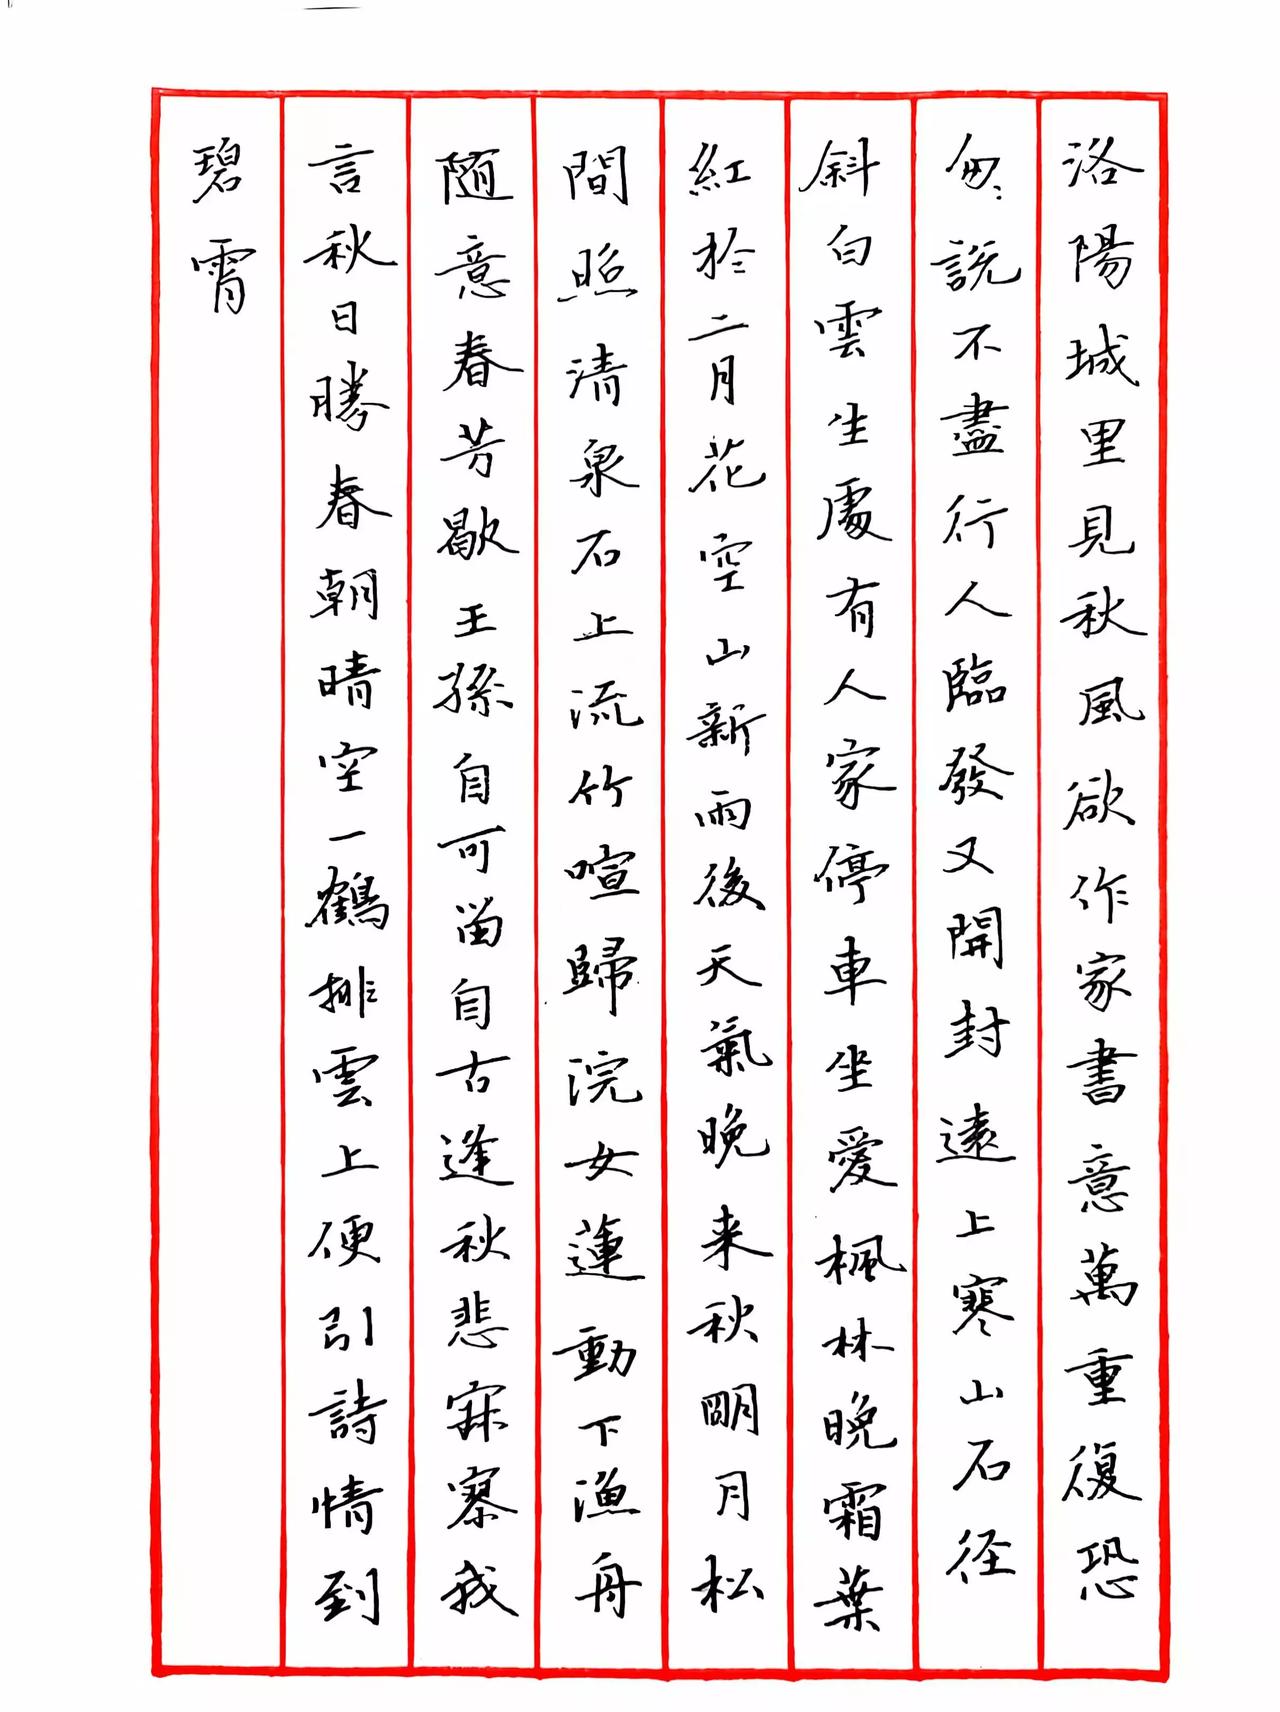 洛陽城里見秋風欲作家書意萬重復恐
匆匆說不盡行人臨發又開封遠上寒山石径
斜白雲生處有人家停車坐愛楓林晚霜葉
紅於二月花空山新雨後天氣晚来秋明月松
間照清泉石上流竹喧歸浣女蓮動下漁舟
随意春芳歇王孫自可留自古逢秋悲寂寥我
言秋日勝春朝晴空一鶴排雲上便引詩情到
碧霄